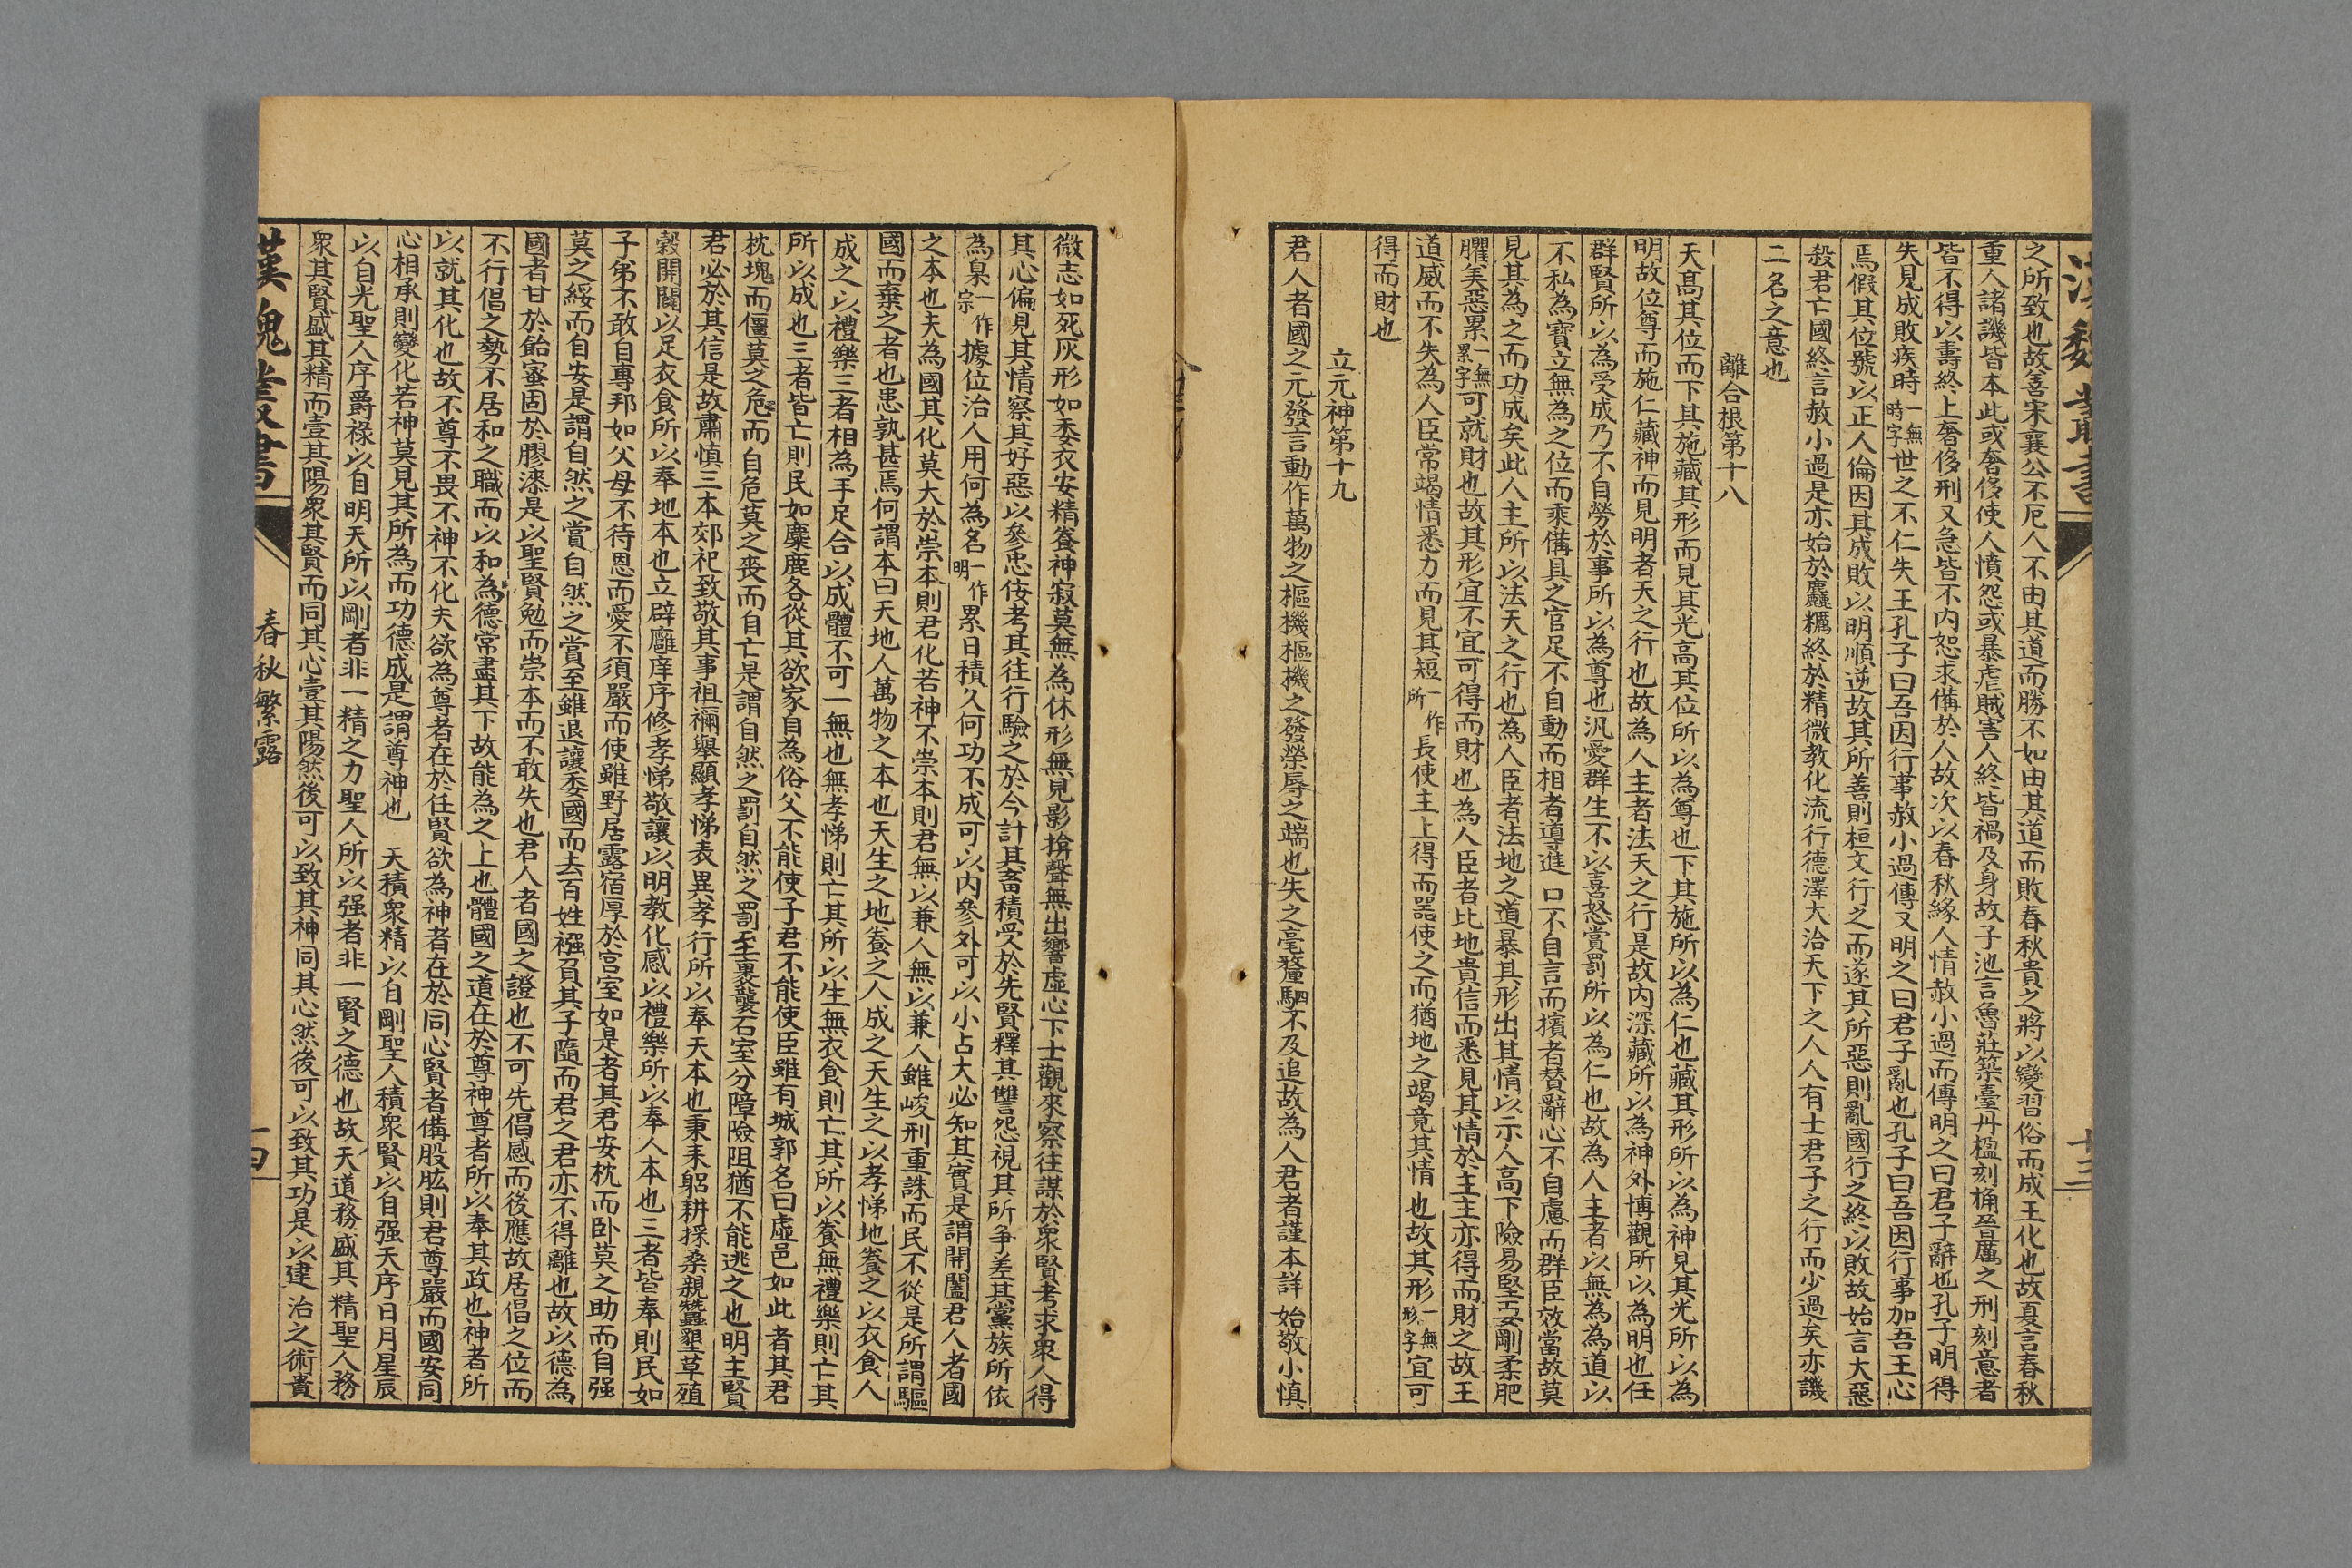 漢魏叢書
十三
之所致也故善宋襄公不厄人不由其道而勝不如由其道而敗春秋貴之將以變習俗而成王化也故夏言春秋
重人諸譏皆本此或奢侈使人憤怨或暴虐賊害人終皆禍及身故子池言魯莊築臺丹楹刻桷晉厲之刑刻意者
皆不得以壽終上奢侈刑又急皆不内恕求備於人故次以春秋緣人情赦小過而傳明之曰君子辭也孔子明得
失見成敗疾時一無時字世之不仁失王孔子曰吾因行事赦小過傳又明之曰君子亂也孔子曰吾因行事加吾王心
焉假其位號以正人倫因其成敗以明順逆故其所善則桓文行之而遂其所惡則亂國行之終以敗故始言大惡
殺君亡國終言赦小過是亦始於麤糲終於精微教化流行德澤大洽天下之人人有士君子之行而少過矣亦譏
二名之意也
離合根第十八
天高其位而下其施藏其形而見其光高其位所以為尊也下其施所以為仁也藏其形所以為神見其光所以為
明故位尊而施仁藏神而見明者天之行也故為人主者法天之行是故内深藏所以為神外博觀所以為明也任
群賢所以為受成乃不自勞於事所以為尊也汎愛群生不以喜怒賞罰所以為仁也故為人主者以無為為道以
不私為寶立無為之位而乘備具之官足不自動而相者導進口不自言而擯者贊辭心不自慮而群臣效當故莫
見其為之而功成矣此人主所以法天之行也為人臣者法地之道暴其形出其情以示人高下險易堅耎剛柔肥
臞美惡累一無累字可就財也故其形宜不宜可得而財也為人臣者比地貴信而悉見其情於主主亦得而財之故王
道威而不失為人臣常竭情悉力而見其短一作所長使主上得而器使之而猶地之竭竟其情也故其形一無形字宜可
得而財也
立元神第十九
君人者國之元發言動作萬物之樞機樞機之發榮辱之端也失之毫釐駟不及追故為人君者謹本詳始敬小慎
微志如死灰形如委衣安精養神寂莫無為休形無見影揜聲無出響虛心下士觀來察往謀於衆賢考求衆人得
其心偏見其情察其好惡以參忠佞考其往行驗之於今計其畜積受於先賢釋其讐怨視其所争差其黨族所依
為臬一作宗據位治人用何為名一作明累日積久何功不成可以内參外可以小占大必知其實是謂開闔君人者國
之本也夫為國其化莫大於崇本崇本則君化若神不崇本則君無以兼人無以兼人雖峻刑重誅而民不從是所謂驅
國而棄之者也患孰甚焉何謂本曰天地人萬物之本也天生之地養之人成之天生之以孝悌地養之以衣食人
成之以禮樂三者相為手足合以成體不可一無也無孝悌則亡其所以生無衣食則亡其所以養無禮樂則亡其
所以成也三者皆亡則民如麋鹿各從其欲家自為俗父不能使子君不能使臣雖有城郭名曰虛邑如此者其君
枕塊而僵莫之危而自危莫之喪而自亡是謂自然之罰自然之罰至裹襲石室分障險阻猶不能逃之也明主賢
君必於其信是故肅慎三本郊祀致敬共事祖禰舉顯孝悌表異孝行所以奉天本也秉耒躬耕採桑親蠶墾草殖
穀開闢以足衣食所以奉地本也立辟廱庠序修孝悌敬讓以明教化感以禮樂所以奉人本也三者皆奉則民如
子弟不敢自專邦如父母不待恩而愛不須嚴而使雖野居露宿厚於宫室如是者其君安枕而卧莫之助而自强
莫之綏而自安是謂自然之賞自然之賞至雖退讓委國而去百姓襁負其子隨而君之君亦不得離也故以德為
國者甘於飴蜜固於膠漆是以聖賢勉而崇本而不敢失也君人者國之證也不可先倡感而後應故居倡之位而
不行倡之勢不居和之職而以和為德常盡其下故能為之上也體國之道在於尊神尊者所以奉其政也神者所
以就其化也故不尊不畏不神不化夫欲為尊者在於任賢欲為神者在於同心賢者備股肱則君尊嚴而國安同
心相承則變化若神莫見其所為而功德成是謂尊神也　天積衆精以自剛聖人積衆賢以自强天序日月星辰
以自光聖人序爵祿以自明天所以剛者非一精之力聖人所以强者非一賢之德也故天道務盛其精聖人務
衆其賢盛其精而壹其陽衆其賢而同其心壹其陽然後可以致其神同其心然後可以致其功是以建治之術貴
漢魏叢書
春秋繁露
十四